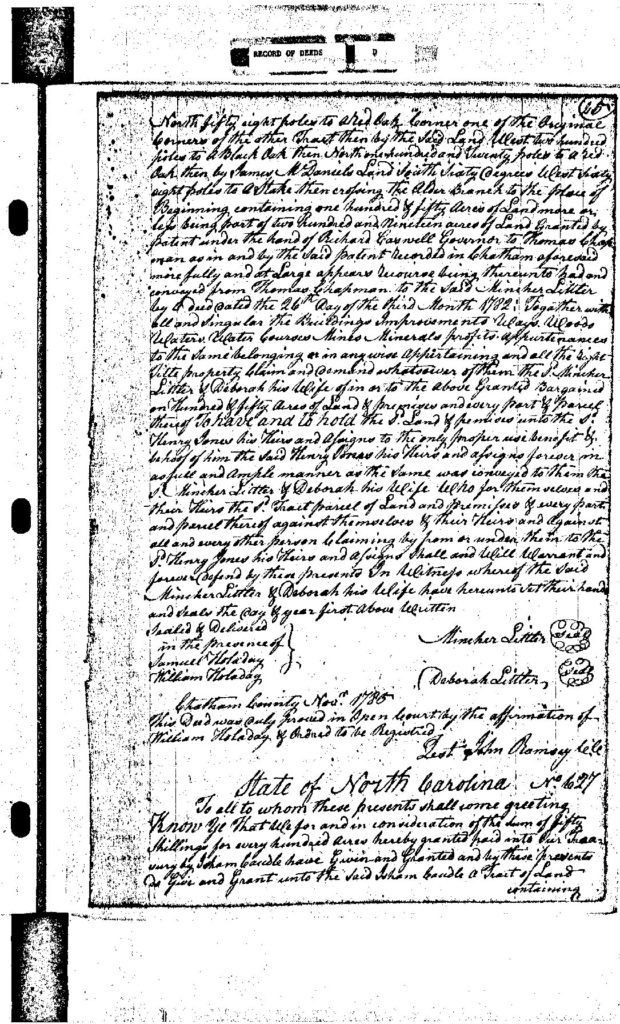 RECORD OF DEEDS D
65
North fifty eight poles to a Red Oak Corner one of the Original
Corners of the other Tract then by the Said Land West two hundred
poles to a Black Oak then North one hundred and Twenty poles to a Red
Oak then by James McDaniels Land South Sixty Degrees West Sixty
eight poles to a Stake then crossing the Alder Branch to the place of
Beginning containing one hundred & fifty Acres of Land more or
less being part of two Hundred and Nineteen acres of Land Granted by
patent under the hand of Richard Caswell Governor to Thomas Chap
man as in and by the Said patent Recorded in Chatham aforesaid
more fully and at Large appears recourse being thereunto had and
conveyed from Thomas Chapman to the Said Mincher Litter
by a deed dated the 26th Day of the third Month 1782: Together with
all and Singular the Buildings Improvements Ways Woods
Waters Water Courses Mines Minerals profits Appurtenances
to the Same belonging or in any wise Appertaining and all the Right
Title property Claim and demand whatsoever of them the Sd. Mincher
Littler & Deborah his Wife of in or to the Above Granted Bargained
on Hundred & fifty Acres of Land & premises and every part & Parcel
thereof To have and to hold the Sd. Land & premises unto the Sd.
Henry Jones his Heirs and Assigns to the only proper use benefit &
behoof of him the Said Henry Jones his Heirs and assigns forever in
as full and Ample manner as the Same was conveyed to them the
Sd. Mincher Littler & Deborah his Wife Who for themselves and
their Heirs the Sd. Tract parcel of Land and premises & every part
and parcel thereof against themselves & their Heirs and Against
all and every other person Claiming by from or under them to the
Sd. Henry Jones his Heirs and Assigns Shall and Will Warrant and
forever Defend by these presents In Witness whereof the Said
Mincher Littler & Deborah his Wife have hereunto Set their hands
and Seals the Day & year first Above Written
Sealed & Delivered
in the presence of
Mincher Littler Seal
Samuel Holaday
William Holaday
Deborah Littler Seal
Chatham County Novr. 1785
this Deed was duly proved in Open Court by the affirmation of
William Holaday & Ordered to be Registred
Test John Ramsey CC
State of North Carolina No. 627
To all to whom these presents shall come greeting
Know Ye That We for and in consideration of the sum of fifty
Shillings for every hundred Acres hereby granted paid into Our Treas
ury by Isham Caudle have Given and Granted and by these presents
do Give and Grant unto the Said Isham Caudle A Tract of Land
containing